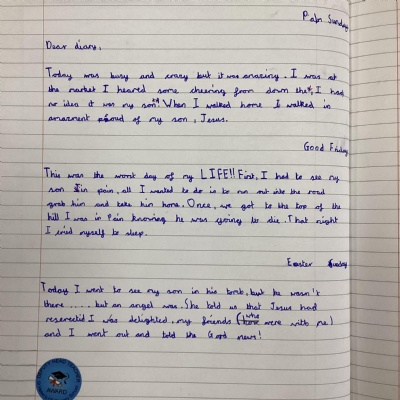 Palm Sunday
Dear diary,
Today was busy and crazy but it was amazing. I was at
the market I heared some cheering from down the, I had
no idea it was my son!! When I walked home I walked in
amazment proud of my son, Jesus.
Good Friday
This was the worst day of my LIFE!! First, I had to see my
son in pain, all I wanted to do is to run out into the road
grab him and take him home. Once, we got to the top of the
hill I was in pain knowing he was going to die. That night
I cried myself to sleep.
Easter Sunday
Today I went to see my son in his tomb, but he wasn't
there .... but an angel was. She told us that Jesus had
reserected I was delighted, my friends (who were with me)
and I went out and told the Good news!
AWARD